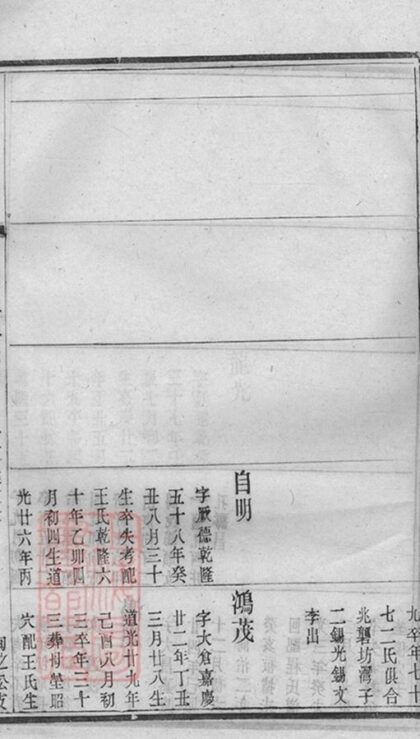 自明
字厥德乾隆
五十八年癸
丑八月三十
生卒失考配
王氏乾隆六
十年乙卯四
月初四生道
光廿六年丙
九年七
七二氏俱合
兆龔坊灣子
二錫光錫文
李出
鴻茂
字大倉嘉慶
廿二年丁丑
三月廿八生
道光廿九年
己酉八月初
三卒年三十
三葬村堂昭
穴配王氏生